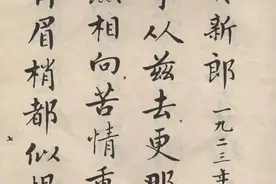 新郎 一九二三年
手从兹去更那
然相向苦情重
眉梢都似恨